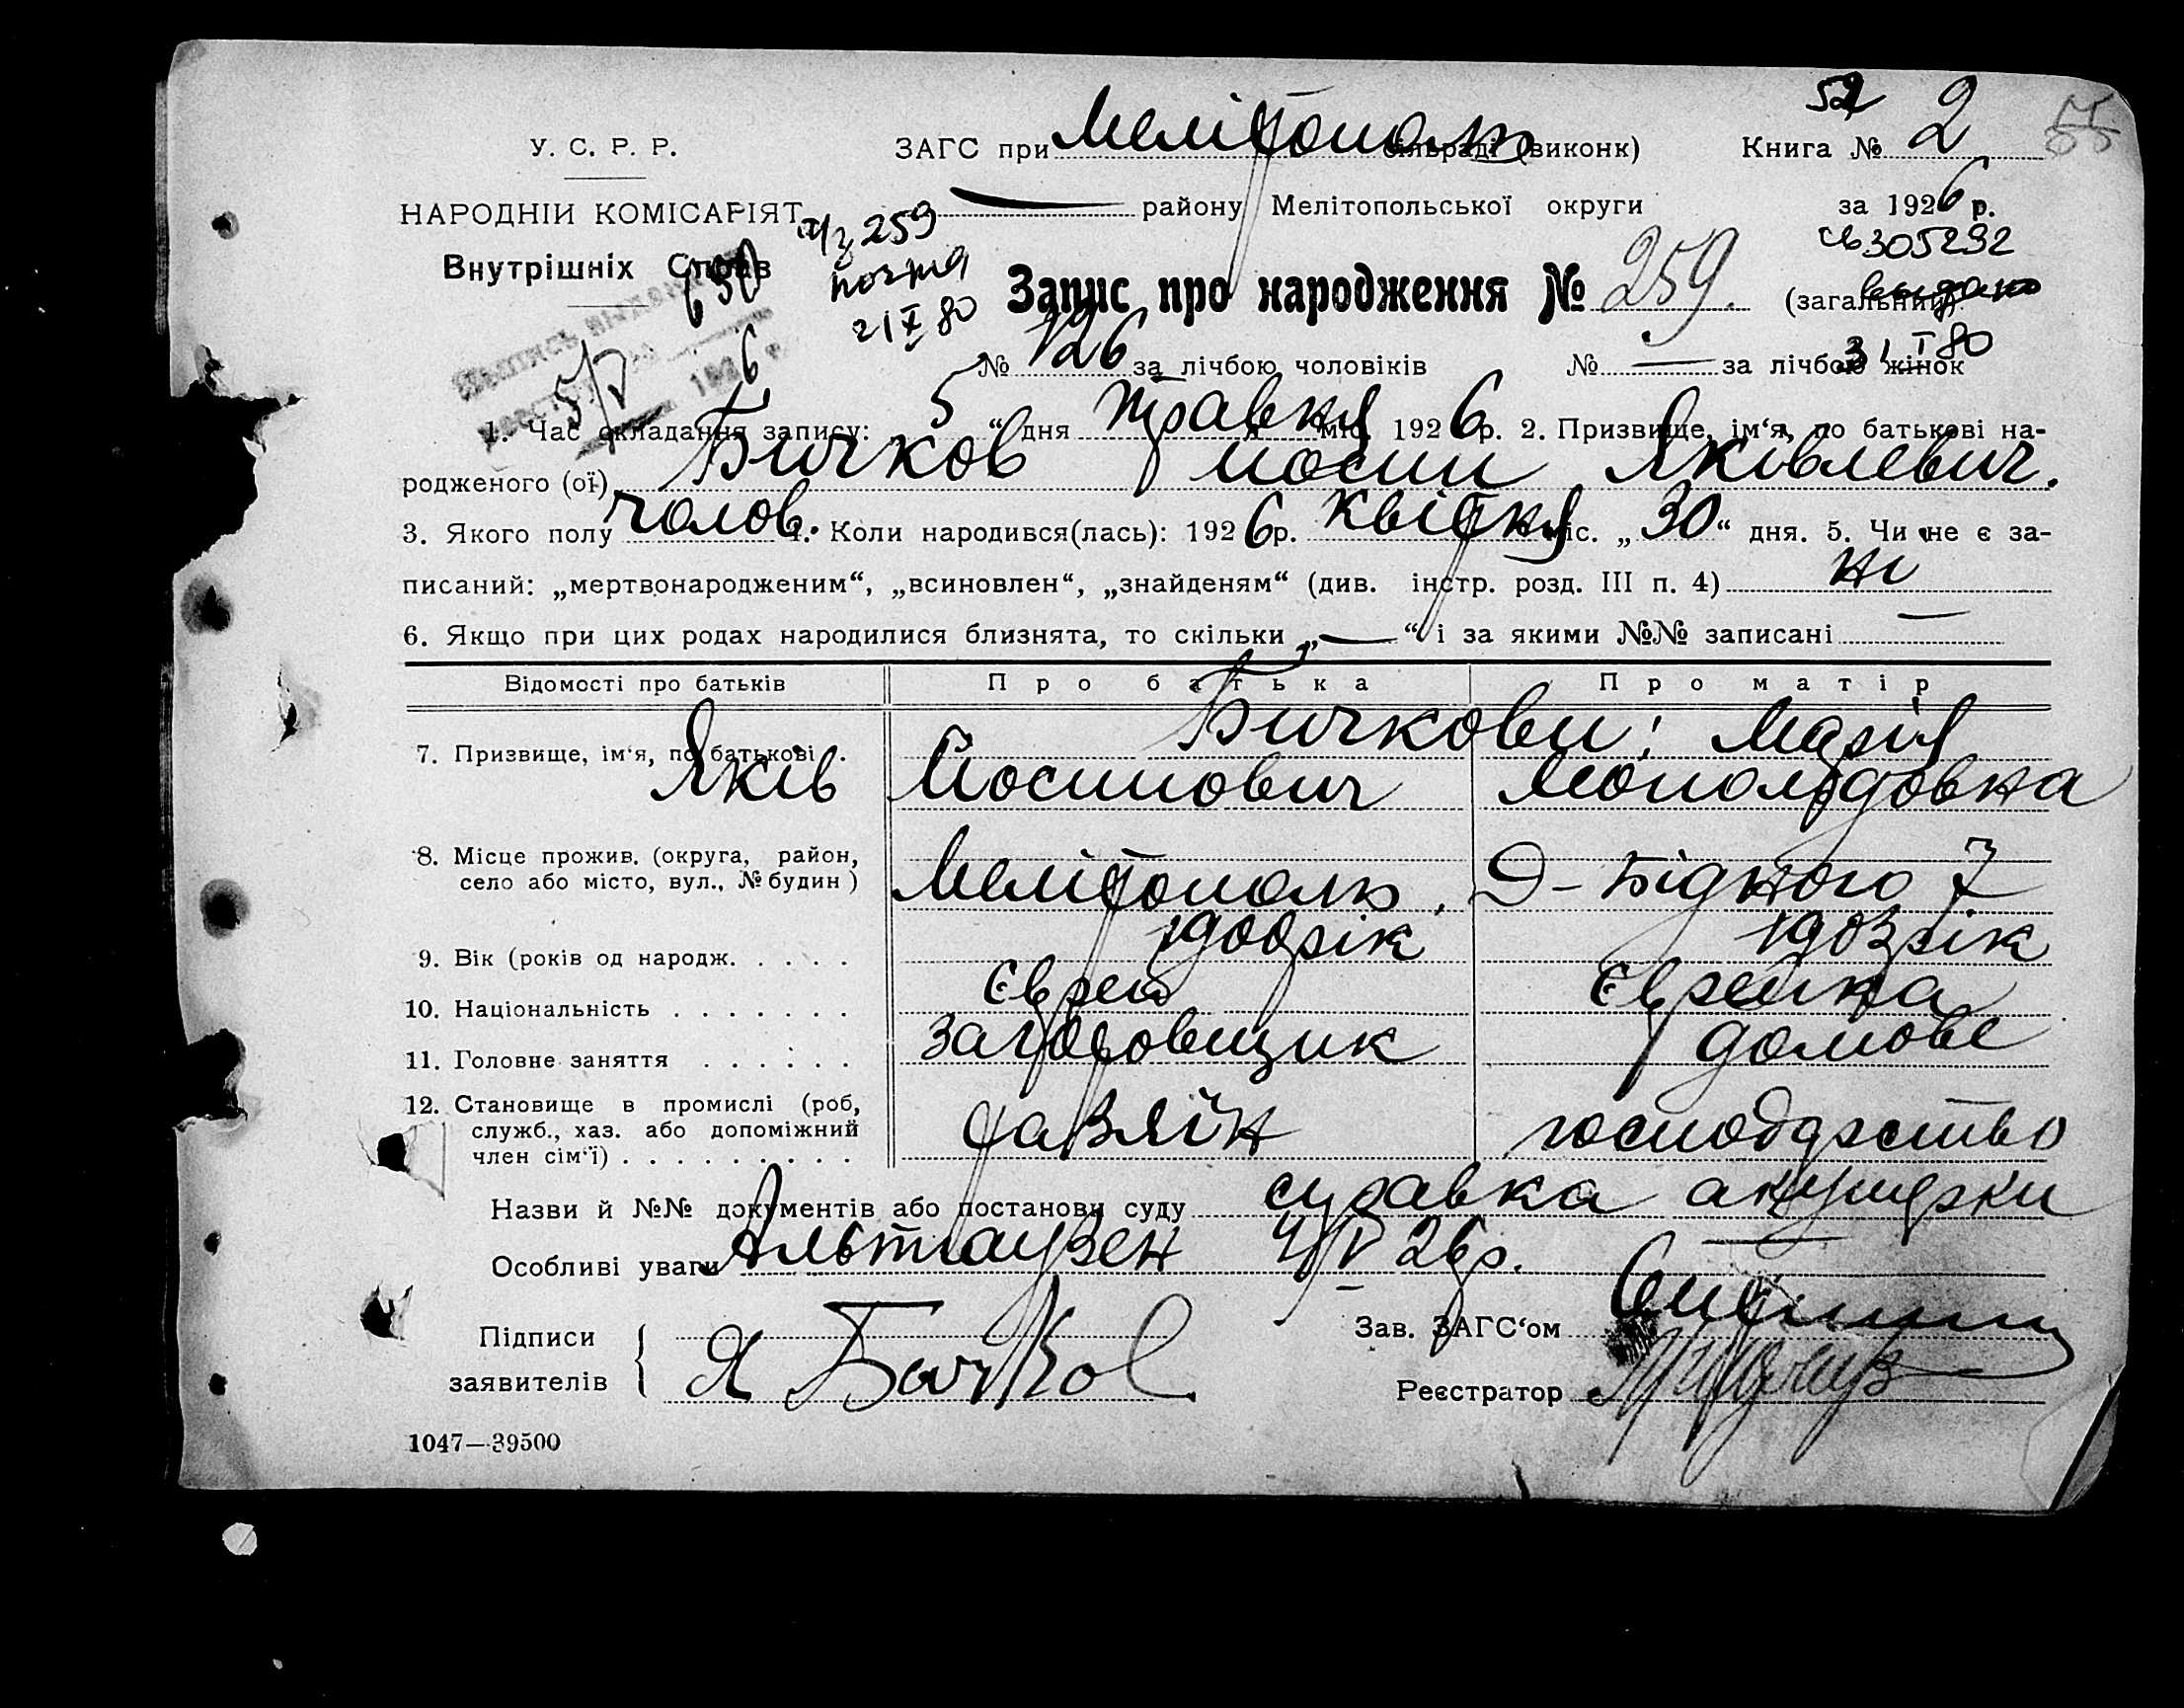 52
У. С. Р. Р. ЗАГС при Мелітополь сільраді (виконк) Книга № 2 55
НАРОДНІЙ КОМІСАРІЯТ — району Мелітопольської округи за 1926 р.
а/з 259 св 305292
Внутрішніх Справ 650 почта Запис про народження № 259. (загальний) выдано
21 X 80 31 I 80
№ 126 за лічбою чоловіків № — за лічбою жінок
5/V 6
1. Час складання запису: 5 “ дня травня міс. 1926 р. 2. Призвище, ім‘я, по батькові на-
родженого (ої) Бичков Йосип Яківлевич.
3. Якого полу чолов. 4. Коли народився(лась): 1926 р. квітня міс. „ 30 “ дня. 5. Чи не є за-
писаний: „мертвонародженим“, „всиновлен“, „знайденям“ (див. інстр. розд. III п. 4) ні
6. Якщо при цих родах народилися близнята, то скільки „ — “ і за якими №№ записані —
Відомості про батьків Про батька Про матір
Бичкови: Марія
7. Призвище, ім‘я, по батькові . .
Яків Йосипович Леопольдовна
8. Місце прожив. (округа, район,
село або місто, вул., № будин ) Мелітополь. Д-Бідного 7
9. Вік (років од народж. . . . . 1900 рік 1903 рік
10. Національність . . . . . . . Єврей Єврейка
11. Головне заняття . . . . . . заготовщик домове
12. Становище в промислі (роб,
служб., хаз. або допоміжний господарство
член сім‘ї) . . . . . . . . .
Назви й №№ документів або постанови суду справка акушерки
Особливі уваги Альтгаузен 4/V 26 р.
Підписи Зав. ЗАГС‘ом
заявителів Я Бичков Реєстратор
1047—39500